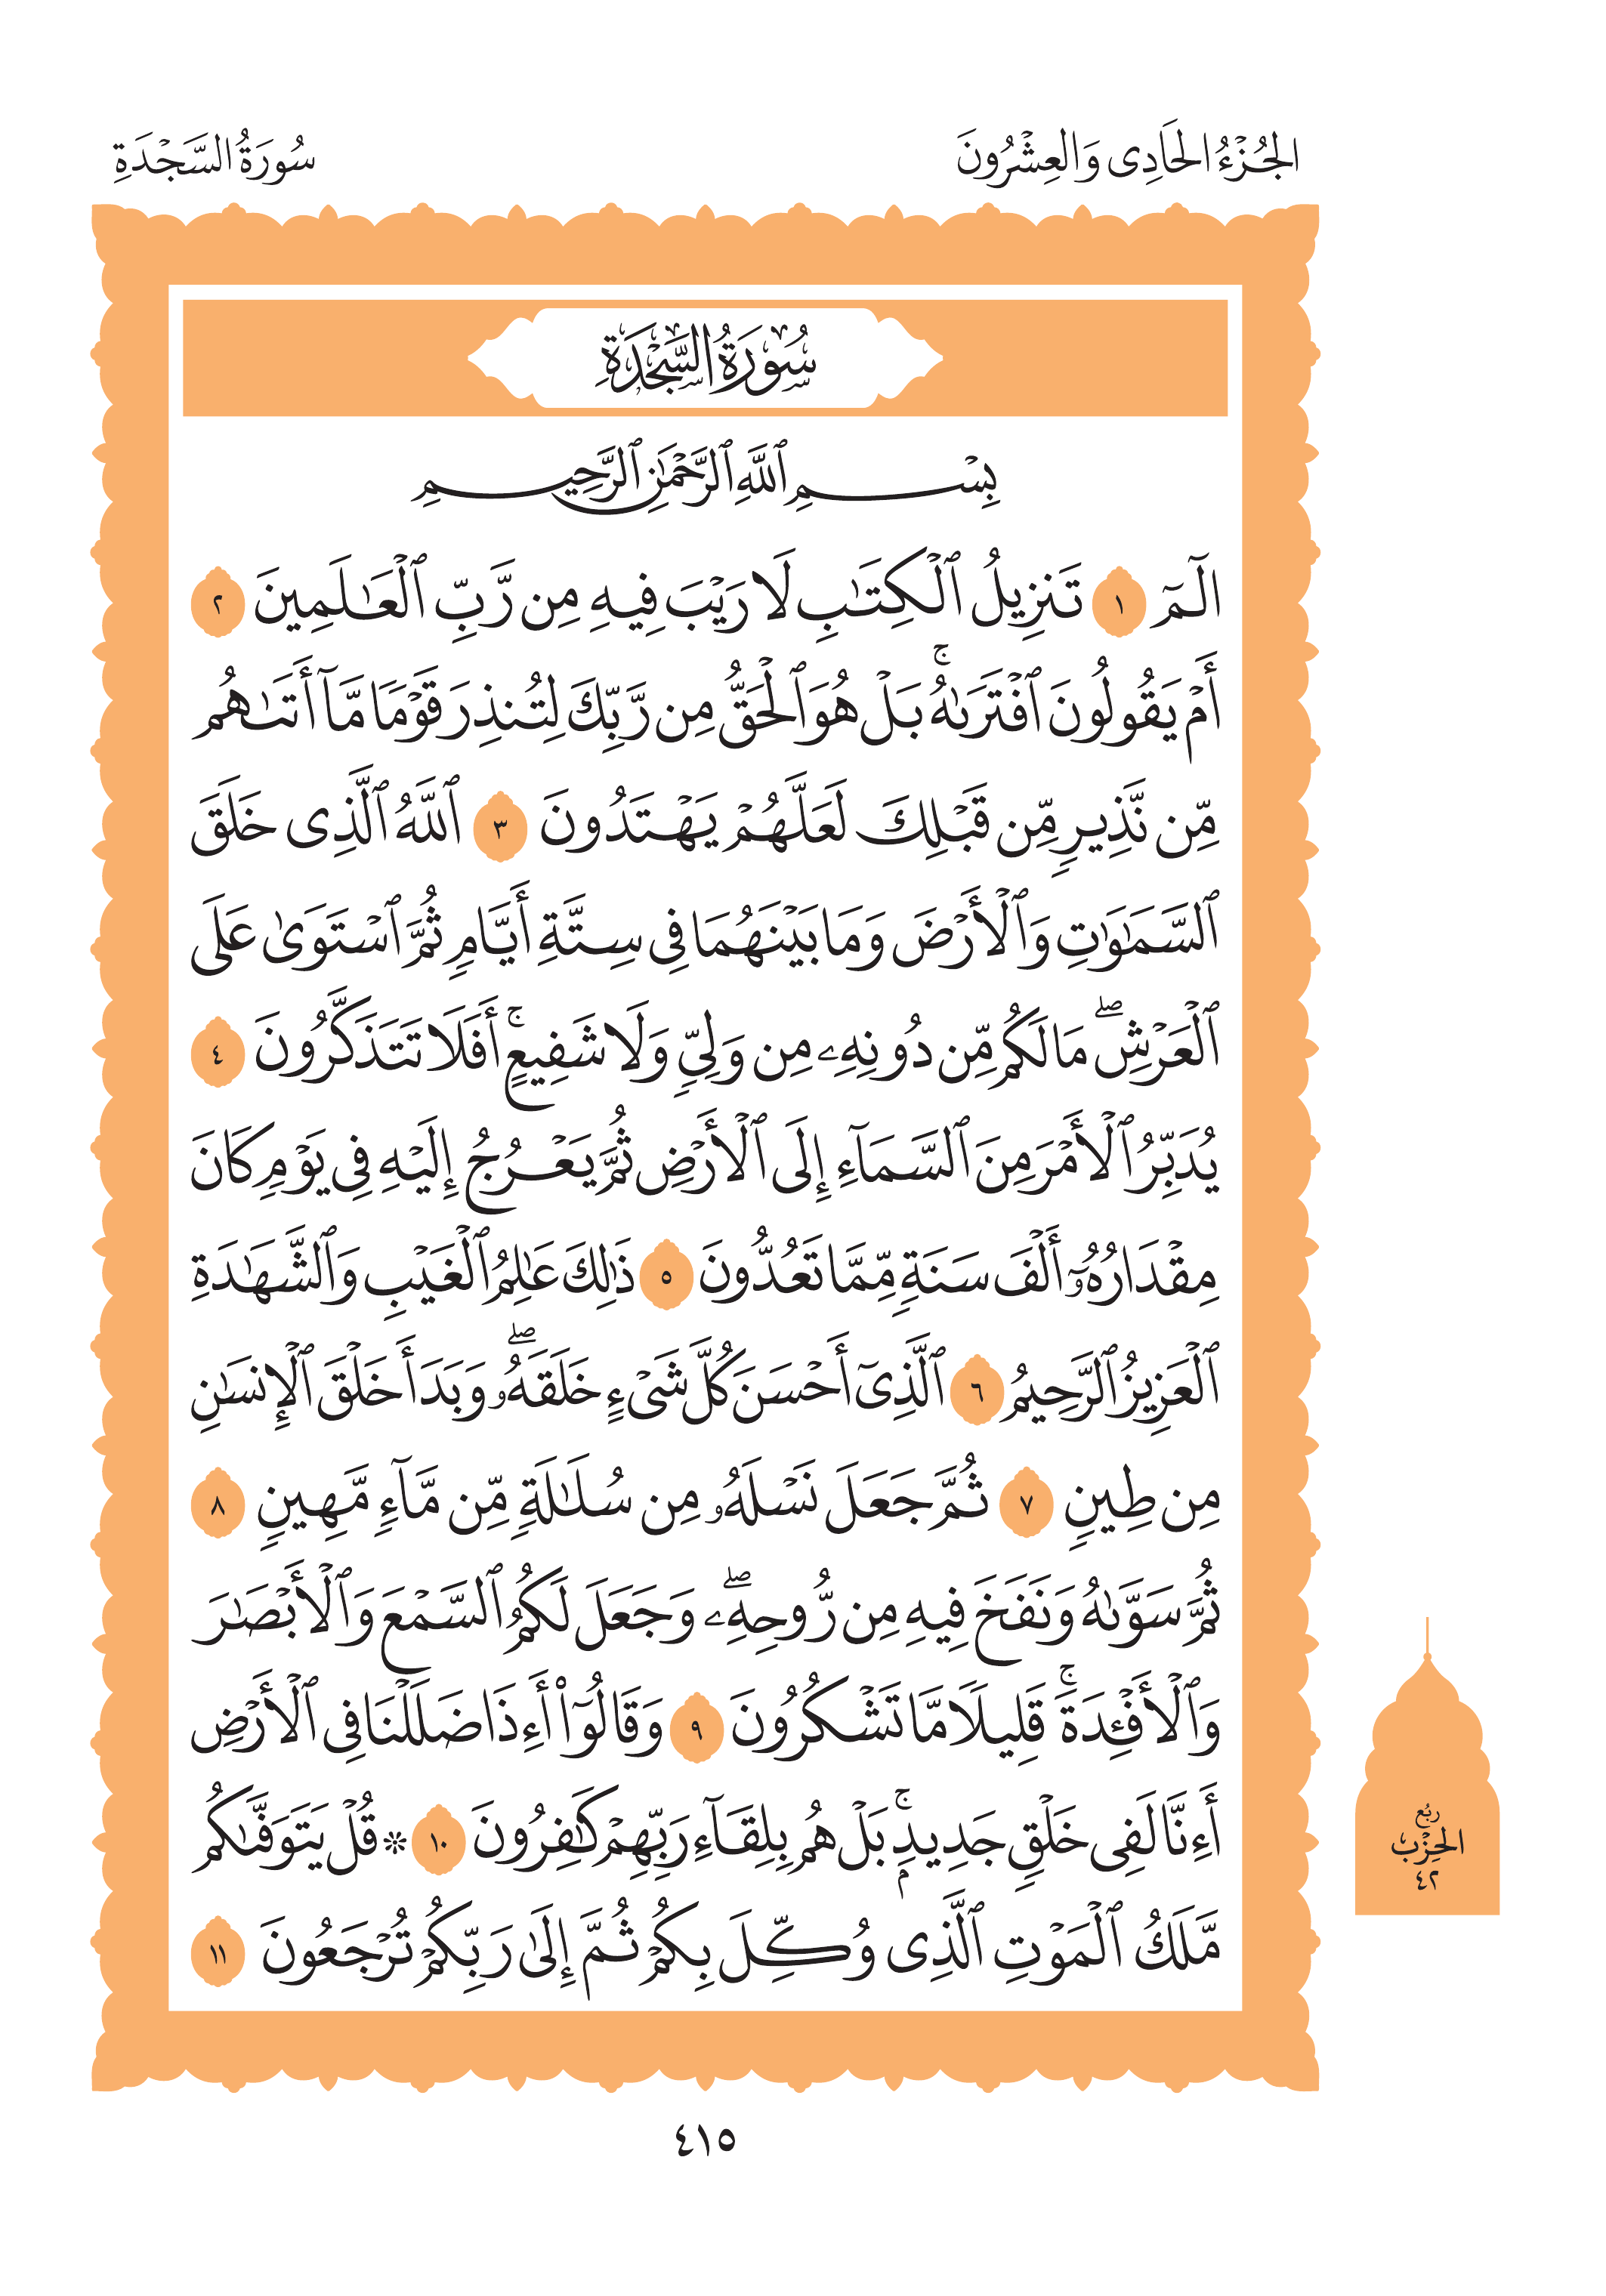 الجُزْءُ الحَادِى وَالعِشْرُونَ
سُورَةُ السَّجْدَةِ
سُورَةُ السَّجْدَةِ
بِسْمِ ٱللَّهِ ٱلرَّحْمَٰنِ ٱلرَّحِيمِ
الٓمٓ ١ تَنزِيلُ ٱلْكِتَٰبِ لَا رَيْبَ فِيهِ مِن رَّبِّ ٱلْعَٰلَمِينَ ٢
أَمْ يَقُولُونَ ٱفْتَرَىٰهُۚ بَلْ هُوَ ٱلْحَقُّ مِن رَّبِّكَ لِتُنذِرَ قَوْمًا مَّآ أَتَىٰهُم
مِّن نَّذِيرٍ مِّن قَبْلِكَ لَعَلَّهُمْ يَهْتَدُونَ ٣ ٱللَّهُ ٱلَّذِى خَلَقَ
ٱلسَّمَٰوَٰتِ وَٱلْأَرْضَ وَمَا بَيْنَهُمَا فِى سِتَّةِ أَيَّامٍ ثُمَّ ٱسْتَوَىٰ عَلَى
ٱلْعَرْشِۖ مَا لَكُم مِّن دُونِهِۦ مِن وَلِىٍّ وَلَا شَفِيعٍۚ أَفَلَا تَتَذَكَّرُونَ ٤
يُدَبِّرُ ٱلْأَمْرَ مِنَ ٱلسَّمَآءِ إِلَى ٱلْأَرْضِ ثُمَّ يَعْرُجُ إِلَيْهِ فِى يَوْمٍ كَانَ
مِقْدَارُهُۥٓ أَلْفَ سَنَةٍ مِّمَّا تَعُدُّونَ ٥ ذَٰلِكَ عَٰلِمُ ٱلْغَيْبِ وَٱلشَّهَٰدَةِ
ٱلْعَزِيزُ ٱلرَّحِيمُ ٦ ٱلَّذِىٓ أَحْسَنَ كُلَّ شَىْءٍ خَلَقَهُۥۖ وَبَدَأَ خَلْقَ ٱلْإِنسَٰنِ
مِن طِينٍ ٧ ثُمَّ جَعَلَ نَسْلَهُۥ مِن سُلَٰلَةٍ مِّن مَّآءٍ مَّهِينٍ ٨
ثُمَّ سَوَّىٰهُ وَنَفَخَ فِيهِ مِن رُّوحِهِۦۖ وَجَعَلَ لَكُمُ ٱلسَّمْعَ وَٱلْأَبْصَٰرَ
وَٱلْأَفْـِٔدَةَۚ قَلِيلًا مَّا تَشْكُرُونَ ٩ وَقَالُوٓا۟ أَءِذَا ضَلَلْنَا فِى ٱلْأَرْضِ
أَءِنَّا لَفِى خَلْقٍ جَدِيدٍۭۚ بَلْ هُم بِلِقَآءِ رَبِّهِمْ كَٰفِرُونَ ١٠ ۞ قُلْ يَتَوَفَّىٰكُم
مَّلَكُ ٱلْمَوْتِ ٱلَّذِى وُكِّلَ بِكُمْ ثُمَّ إِلَىٰ رَبِّكُمْ تُرْجَعُونَ ١١
رُبُع
الحِزْب
٤٢
٤١٥